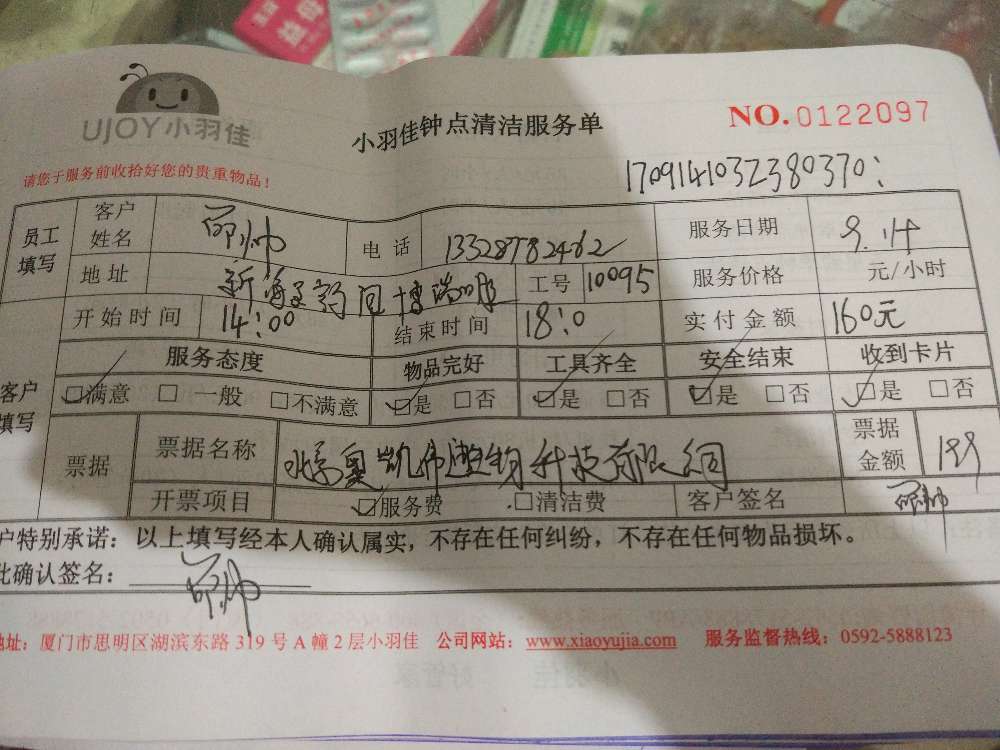 UJOY小羽佳
小羽佳钟点清洁服务单
NO.0122097
请您于服务前收拾好您的贵重物品!
1709141032380370:
员工填写 客户姓名 邵帅 电话 13328782462 服务日期 9.14
地址 新 工号 10095 服务价格 元/小时
开始时间 14:00 结束时间 18:0 实付金额 160元
客户填写 服务态度 物品完好 工具齐全 安全结束 收到卡片
☑满意 □一般 □不满意 ☑是 □否 ☑是 □否 ☑是 □否 ☑是 □否
票据 票据名称 北京奥凯 生物科技有限公司 票据金额
开票项目 ☑服务费 □清洁费 客户签名 邵帅
户特别承诺：以上填写经本人确认属实，不存在任何纠纷，不存在任何物品损坏。
此确认签名： 邵帅
地址：厦门市思明区湖滨东路 319 号 A 幢 2 层小羽佳 公司网站：www.xiaoyujia.com 服务监督热线：0592-5888123